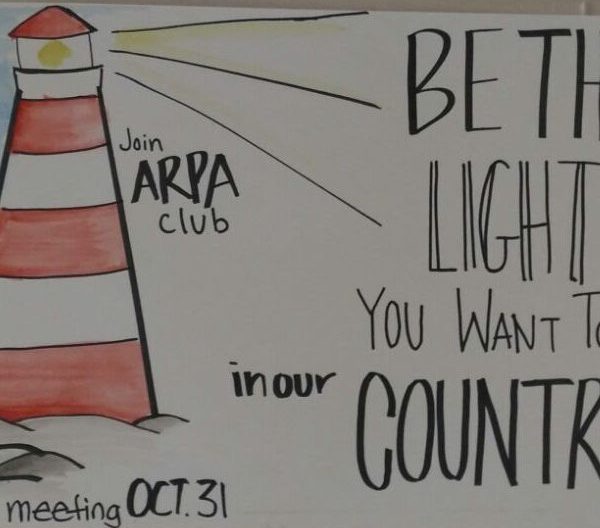 Join
ARPA
club
BE TH
LIGHT
YOU WANT TO
in our
COUNTR
meeting OCT. 31